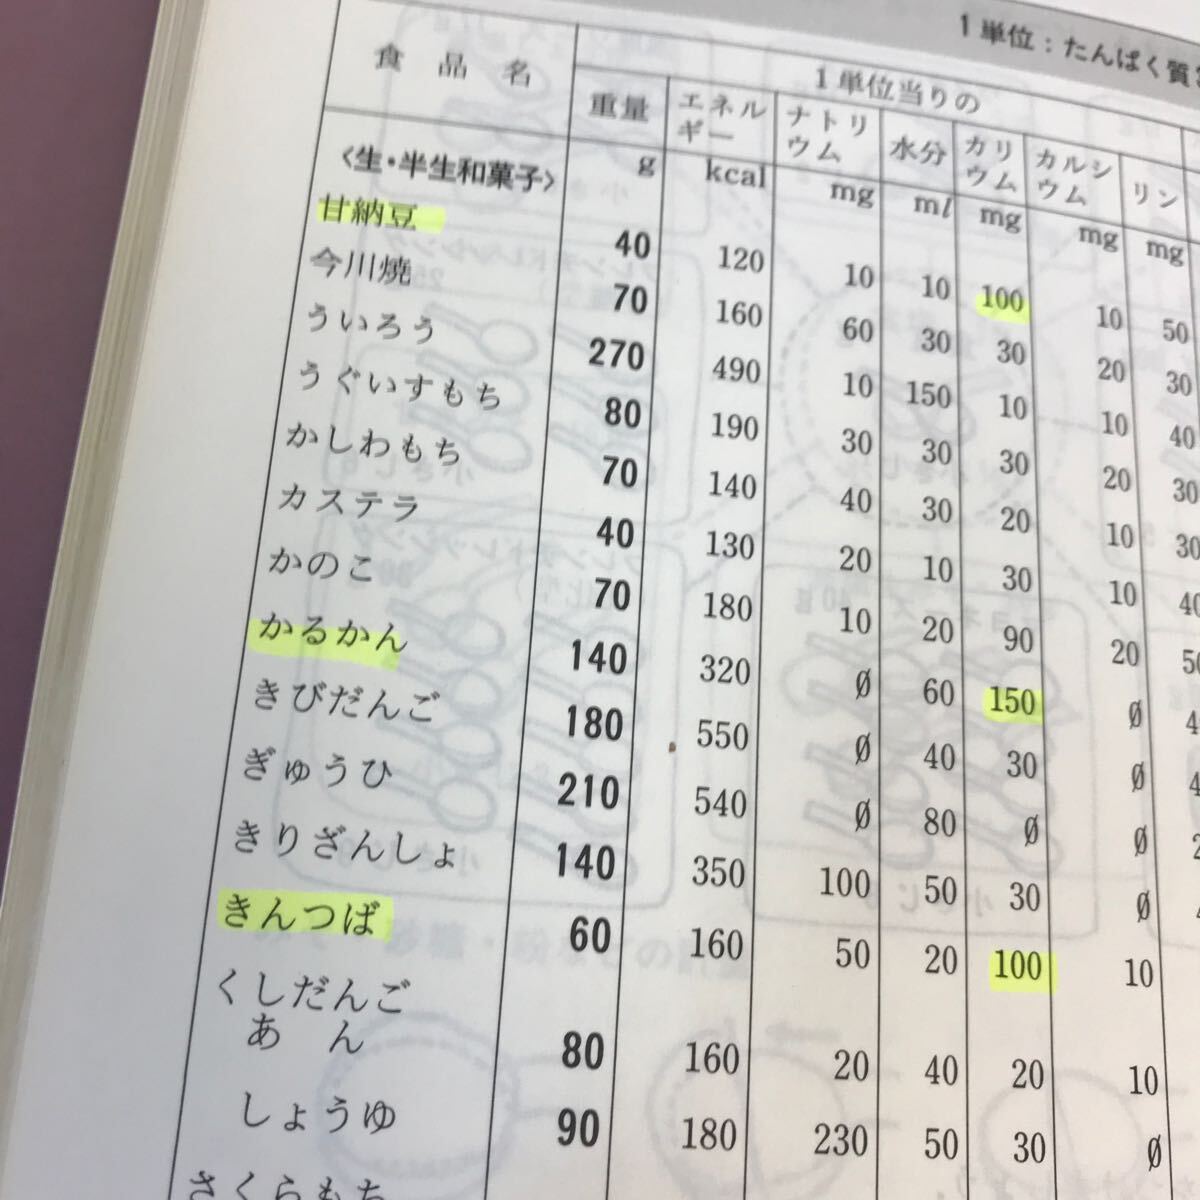 1単位：たんぱく質
食品名
1単位当りの
重量 エネルギー ナトリウム 水分 カリウム カルシウム リン
g kcal mg ml mg mg mg
〈生・半生和菓子〉
甘納豆 40 120 10 10 100 10 50
今川焼 70 160 60 30 30 20 30
ういろう 270 490 10 150 10 10 40
うぐいすもち 80 190 30 30 30 20 30
かしわもち 70 140 40 30 20 10 30
カステラ 40 130 20 10 30 10
かのこ 70 180 10 20 90 20
かるかん 140 320 ∅ 60 150 ∅
きびだんご 180 550 ∅ 40 30 ∅
ぎゅうひ 210 540 ∅ 80 ∅ ∅
きりざんしょ 140 350 100 50 30 ∅
きんつば 60 160 50 20 100 10
くしだんご
あん 80 160 20 40 20 10
しょうゆ 90 180 230 50 30 ∅
さくらもち